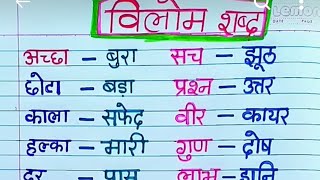 विलोम शब्द
अच्छा – बुरा सच – झूठ
छोटा – बड़ा प्रश्न – उत्तर
काला – सफेद वीर – कायर
हल्का – मारी गुण – दोष
दूर – पास लाभ – हानि